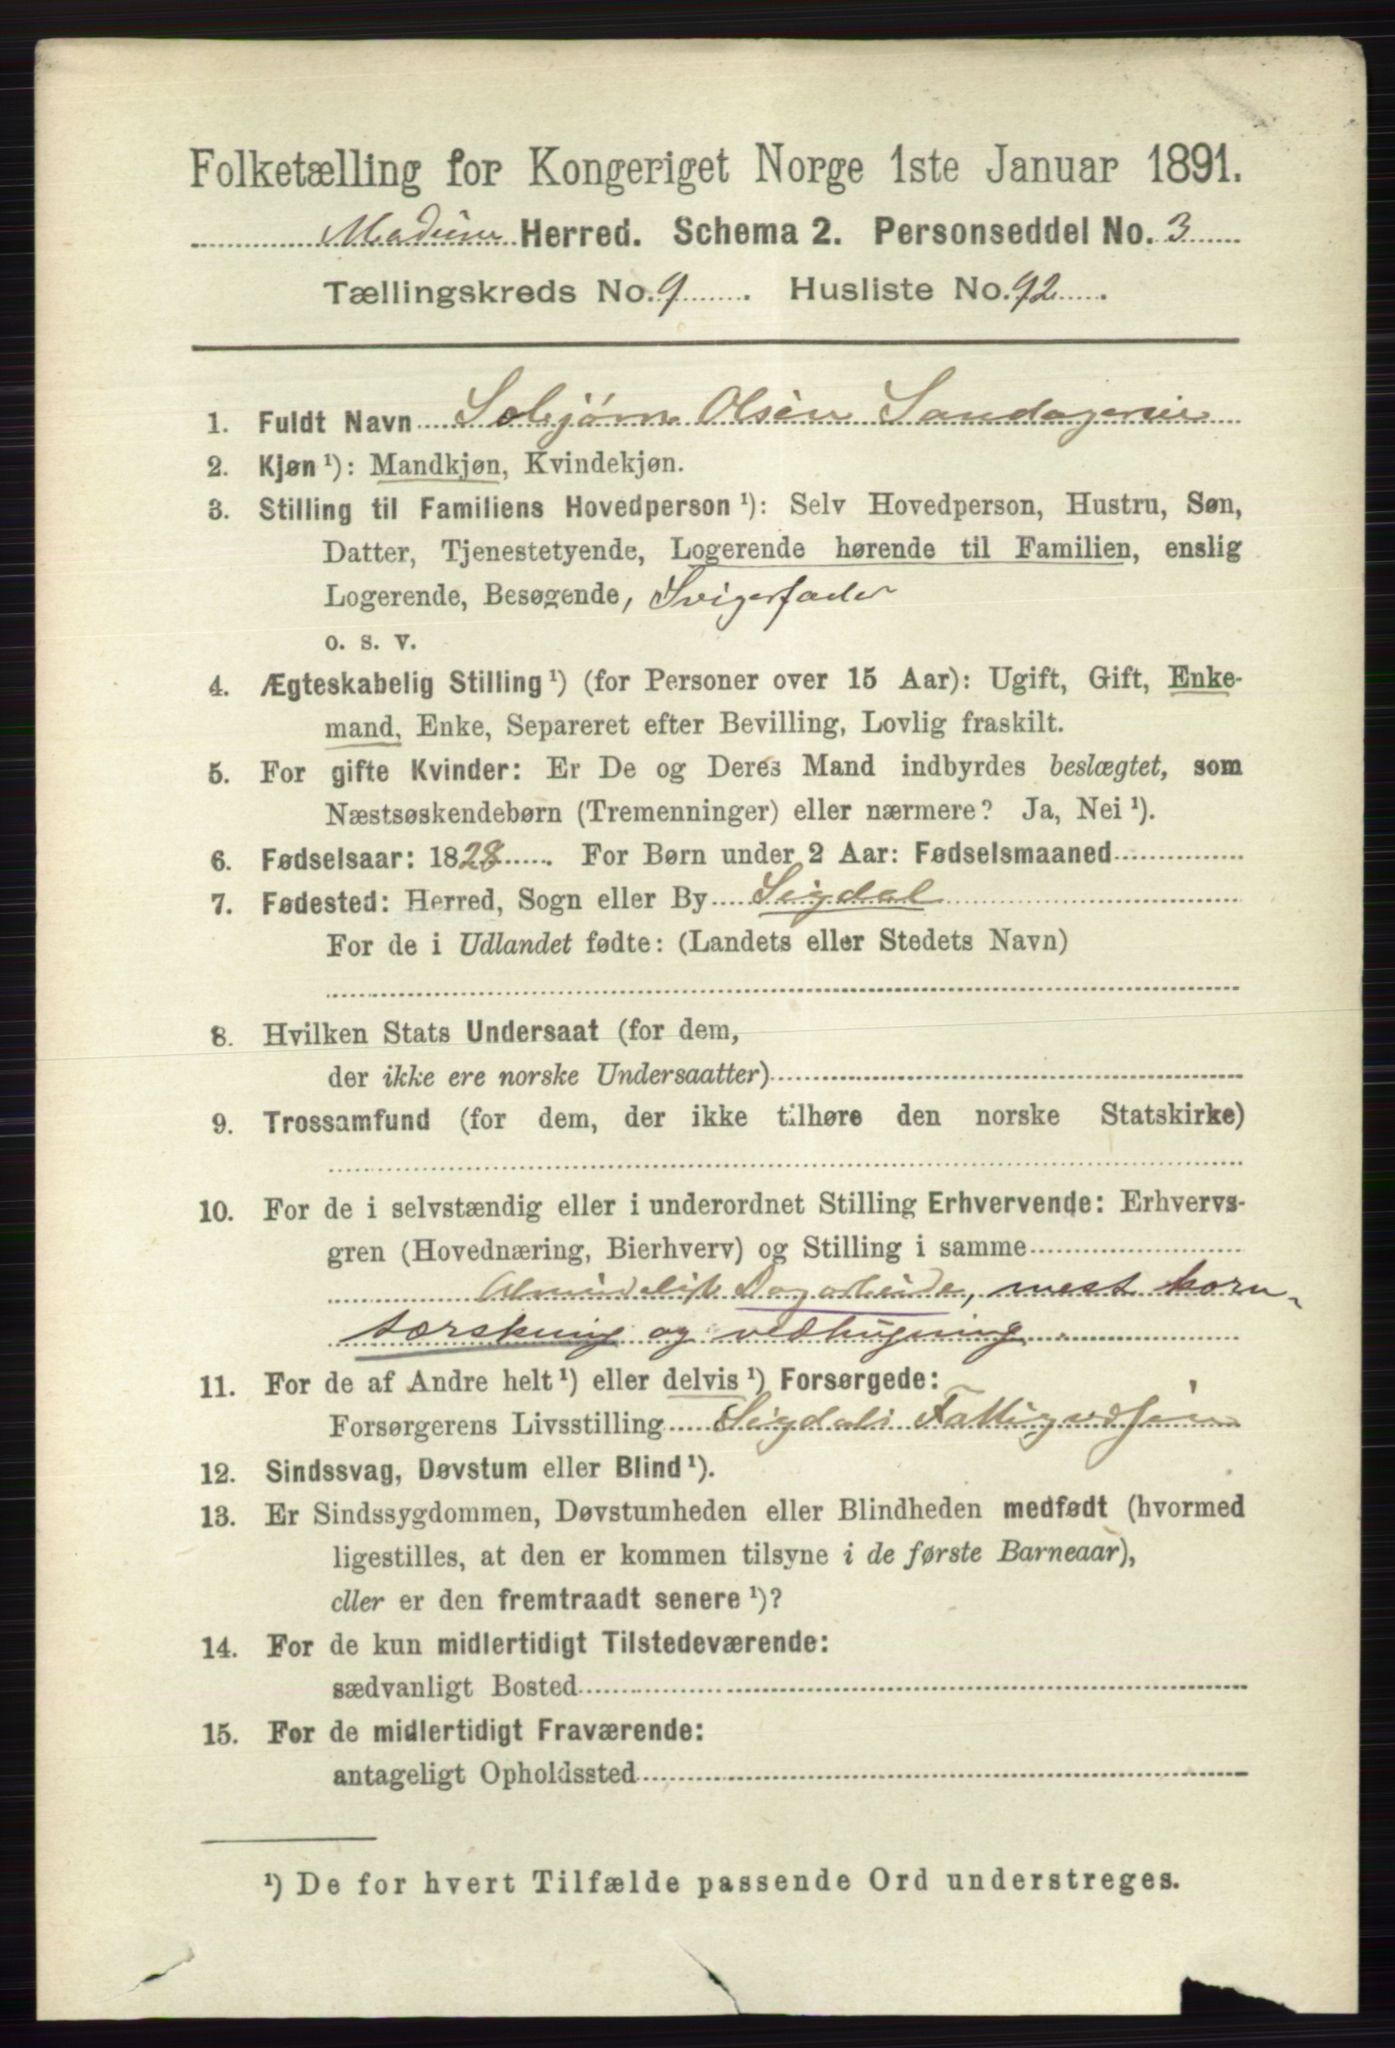 Folketælling for Kongeriget Norge 1ste Januar 1891.
Modum Herred. Schema 2. Personseddel No. 3
Tællingskreds No. 9. Husliste No. 92.
1. Fuldt Navn Olsen
2. Kjøn ¹): Mandkjøn, Kvindekjøn.
3. Stilling til Familiens Hovedperson ¹): Selv Hovedperson, Hustru, Søn,
Datter, Tjenestetyende, Logerende hørende til Familien, enslig
Logerende, Besøgende, Svigerfader
o. s. v.
4. Ægteskabelig Stilling ¹) (for Personer over 15 Aar): Ugift, Gift, Enke-
mand, Enke, Separeret efter Bevilling, Lovlig fraskilt.
5. For gifte Kvinder: Er De og Deres Mand indbyrdes beslægtet, som
Næstsøskendebørn (Tremenninger) eller nærmere? Ja, Nei ¹).
6. Fødselsaar: 1828. For Børn under 2 Aar: Fødselsmaaned
7. Fødested: Herred, Sogn eller By Sigdal
For de i Udlandet fødte: (Landets eller Stedets Navn)
8. Hvilken Stats Undersaat (for dem,
der ikke ere norske Undersaatter)
9. Trossamfund (for dem, der ikke tilhøre den norske Statskirke)
10. For de i selvstændig eller i underordnet Stilling Erhvervende: Erhvervs-
gren (Hovednæring, Bierhverv) og Stilling i samme
Almindelig Dagarbeide, mest korn-
tærskning og vedhugning
11. For de af Andre helt ¹) eller delvis ¹) Forsørgede:
Forsørgerens Livsstilling Sigdals
12. Sindssvag, Døvstum eller Blind ¹).
13. Er Sindssygdommen, Døvstumheden eller Blindheden medfødt (hvormed
ligestilles, at den er kommen tilsyne i de første Barneaar),
eller er den fremtraadt senere ¹)?
14. For de kun midlertidigt Tilstedeværende:
sædvanligt Bosted
15. For de midlertidigt Fraværende:
antageligt Opholdssted
¹) De for hvert Tilfælde passende Ord understreges.